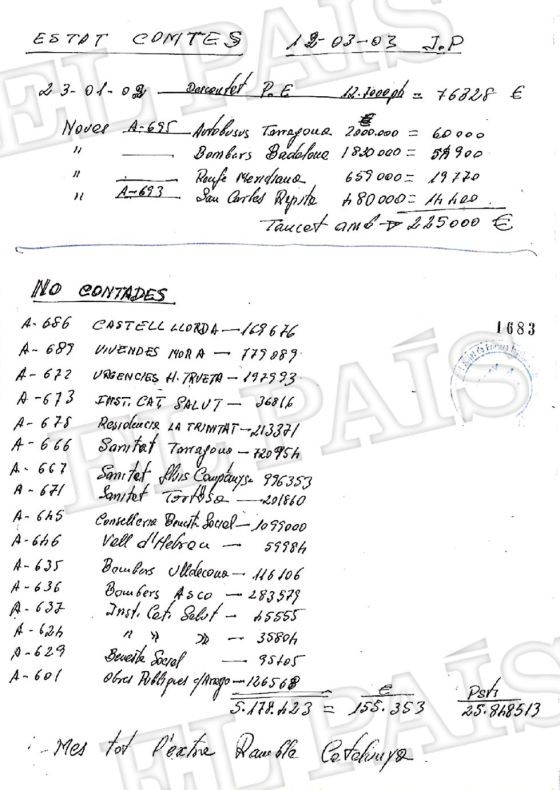 ESTAT COMTES 12-03-03 J.P
23-01-02 Descomtat P.E = 76828 €
Noves A-695 Autobusus Tarragona 2000.000 = 60000
" Bombers Badalona 1830000 = 900
" Meridiana 659000 = 19770
" A-693 San Carles Rapita 480000 = 14400
Tancat amb 225000 €
NO CONTADES
1683
A-686 CASTELL LLORDA - 169676
A-689 VIVENDES MORA - 779089
A-672 URGENCIES H. TRUETA - 197993
A-673 INST. CAT. SALUT - 36816
A-678 Residencia LA TRINITAT - 213371
A-666 Sanitat Tarragona - 720954
A-667 Sanitat Lluis Companys - 996353
A-671 Sanitat Tortosa - 201860
A-645 Conselleria Benest. Social - 1099000
A-646 Vall d'Hebron - 59984
A-635 Bombers Ulldecona - 116106
A-636 Bombers Asco - 283579
A-637 Inst. Cat. Salut - 45555
A-624 " " " - 35804
A-629 Social - 95705
A-601 Obres Publiques c/Arago - 126568
€ Pts
5.178.423 = 155.353 25.848513
Mes tot l'extra Rambla Catalunya
EL PAÍS
EL PAÍS
EL PAÍS
EL PAÍS